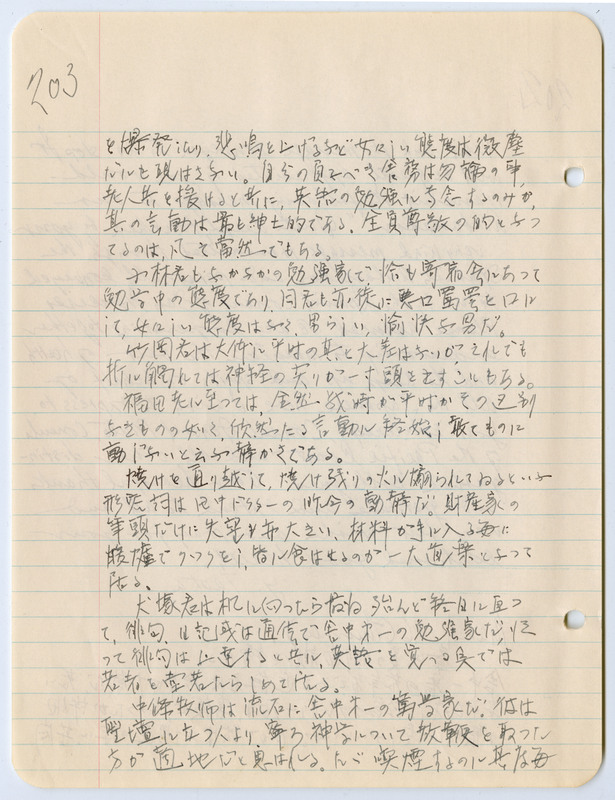 203
を爆発したり、悲鳴を上げるなど女々しい態度は微塵
だにも現はさない。自分の負ふべき舎務は勿論の事、
老人等を援けると共に、英語の勉強に専念するのみか、
其の言動は最も紳士的である。全員尊敬の的となつ
てるのは、凡そ當然でもある。
小林君もなかなかの勉強家で恰も寄宿舎にあつて
勉学中の態度であり、同君も亦徒に悪口罵詈を口に
して、女々しい態度はなく、男らしい、愉快な男だ。
竹岡君は大体に平時の其と大差はないが、それでも
折に觸れては神経の尖りが一寸頭を出すこともある。
福田老に至つては、全然戦時か平時かその区別
なきものの如く、欣然たる言動に終始し敢てものに
動じないと云ふ静かさである。
焼けを通り越して、焼け残りの火に煽られてゐるといふ
形容詞は田中ドクターの昨今の動静だ。財産家の
筆頭だけに失望も亦大きい、材料が手に入る毎に
暖爐でクツクをし、皆に食はせるのが一大道樂となつて
居る。
犬塚君は机に向つたら最后殆んど終日に亘つ
て、俳句、日記或は通信で舎中第一の勉強家だ、従
つて俳句は上達すると共に、英語を覚へる奌では
若者を壷若たらしめて居る。
中條牧師は流石に舎中第一の篤学家だ。彼は
聖壇に立つ人より寧ろ神学について教鞭を取つた
方が適地だと思はれる。たゞ喫煙するのに其な毎